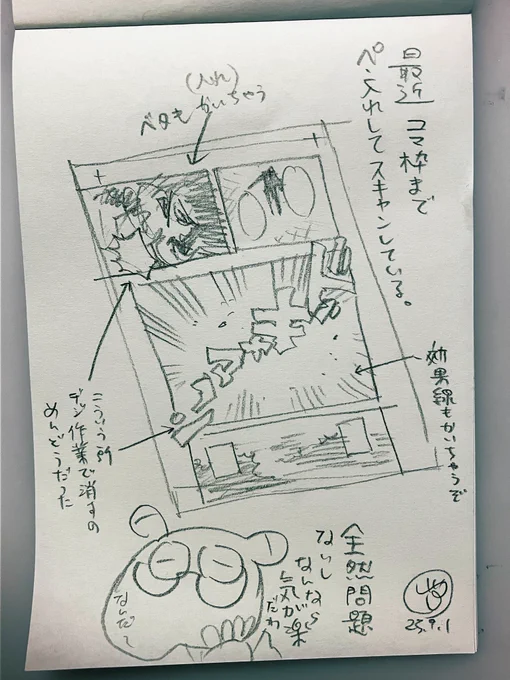 最近コマ枠まで
ペン入れしてスキャンしている。
(入れ)
ベタもかいちゃう
効果線もかいちゃうぞ
こういう所
デジ作業で消すの
めんどうだった
全然問題
ないし
なんなら
気が楽
だわ
なんだ〜
25.9.1